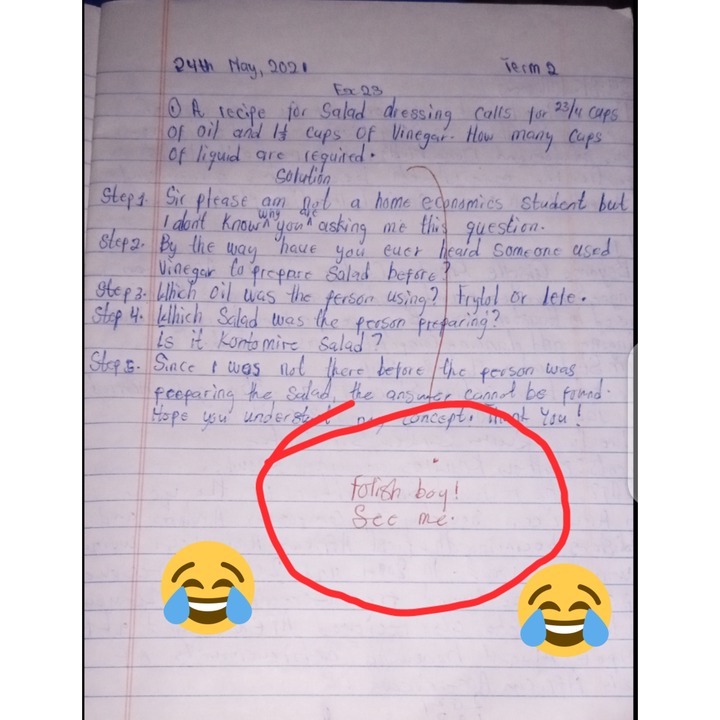 24th May, 2021 Term 2
Ex 23
① A recipe for Salad dressing calls for 2 3/4 cups
of oil and 1 1/2 cups of Vinegar. How many cups
of liquid are required.
Solution
Step 1. Sir please am not a home economics student but
I don't know why you are asking me this question.
Step 2. By the way have you ever heard Someone used
Vinegar to prepare Salad before?
Step 3. Which Oil was the person using? Frytol or lele.
Step 4. Which Salad was the person preparing?
Is it Kontomire Salad?
Step 5. Since I was not there before the person was
preparing the Salad, the answer cannot be found.
Hope you understand my concept. Thank You!
Folish boy!
See me.